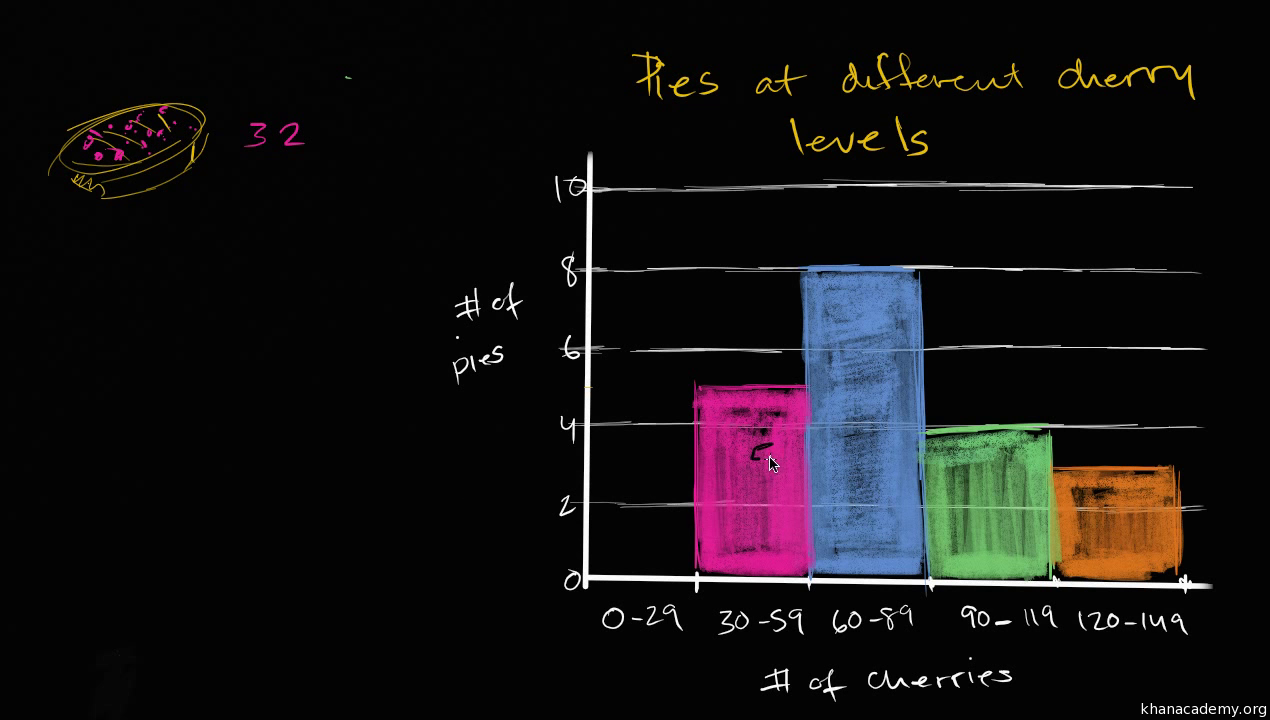 Pies at different cherry
levels
32
10
8
# of
pies
6
4
5
2
0
0-29 30-59 60-89 90-119 120-149
# of cherries
khanacademy.org